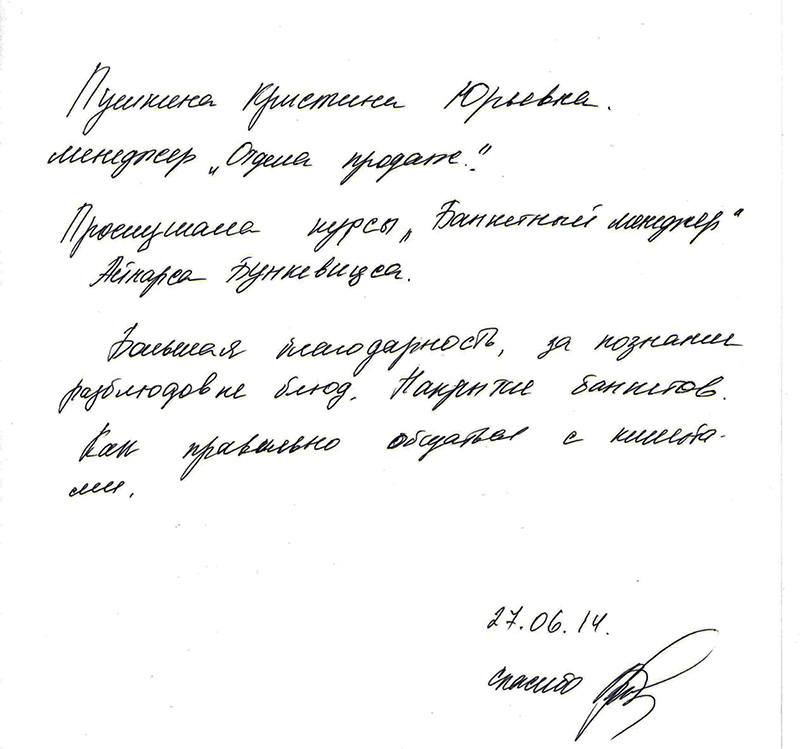 Пушкина Кристина Юрьевна.
менеджер „Отдела продаж.“
Прослушала курсы „Банкетный менеджер“
Айнарса Бункевицса.
Большая благодарность, за познания
разблюдовке блюд. Накрытие банкетов.
Как правильно общаться с клиента-
ми.
27.06.14.
Спасибо